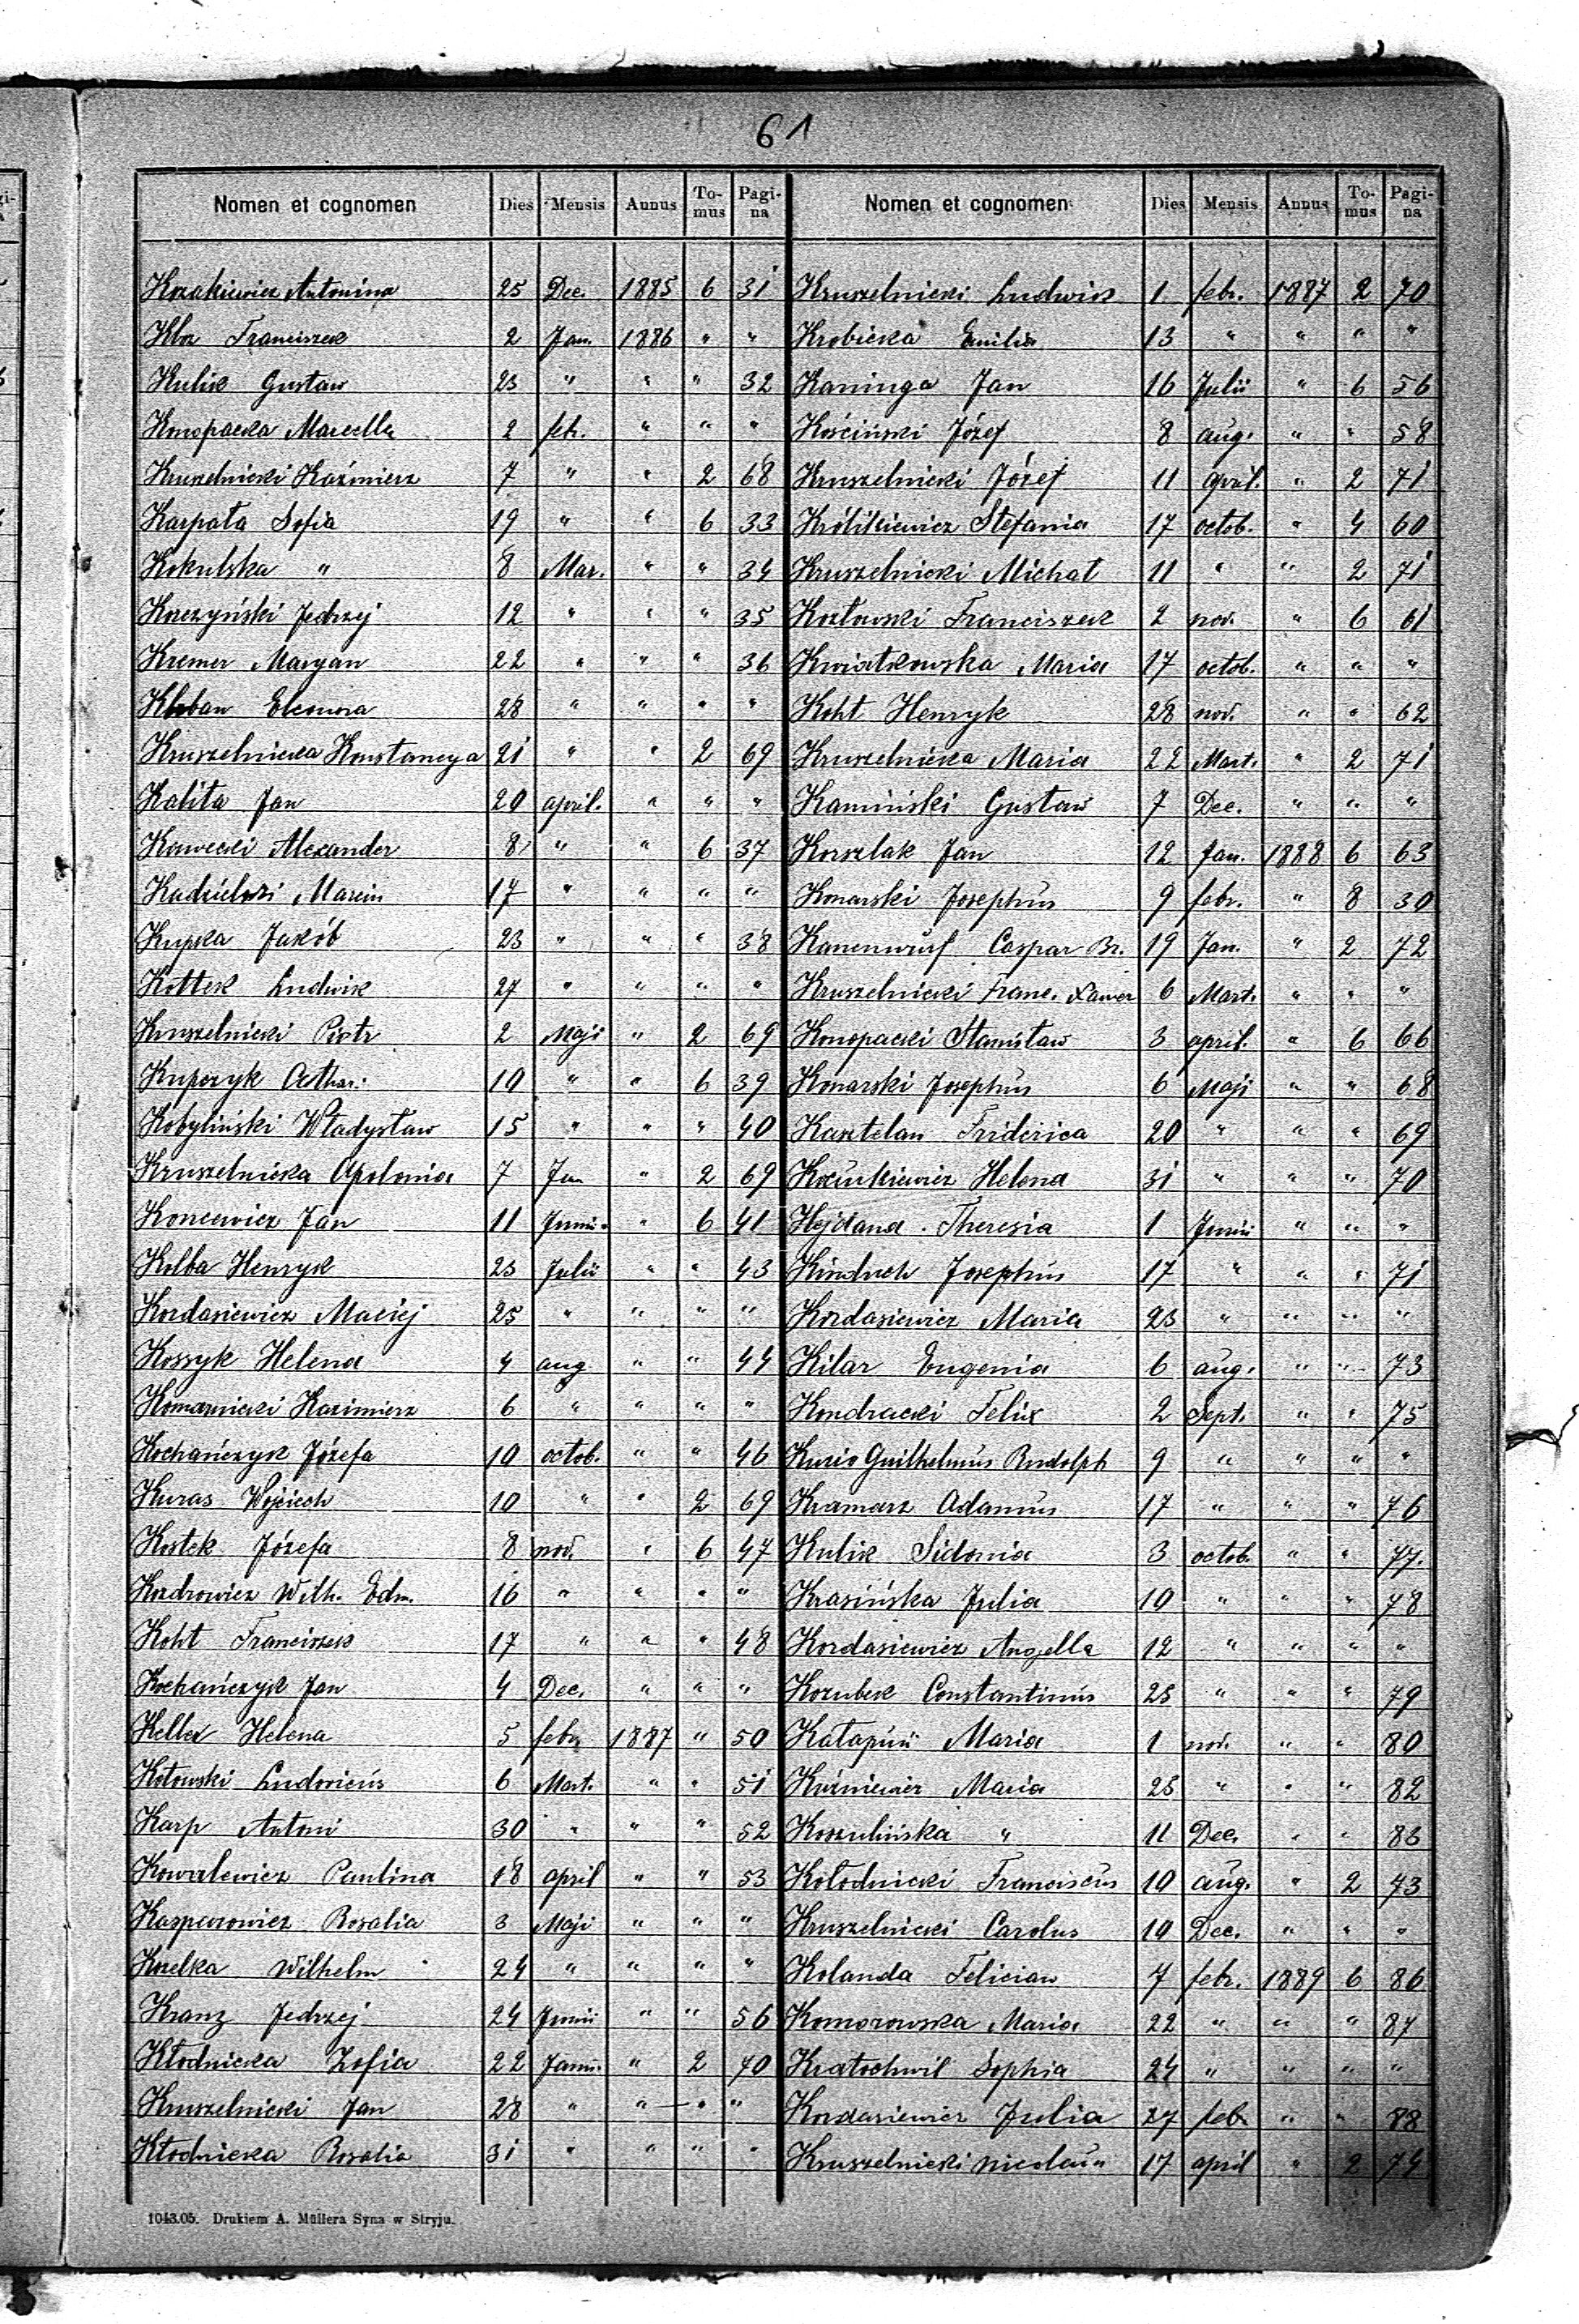 61
Nomen et cognomen Dies Mensis Annus To-mus Pagi-na
Kozakiewicz Antonina 25 Dec. 1885 6 31
Franciszek 2 Jan. 1886 " "
Kulik Gustaw 23 " " " 32
Konopacka Marcella 2 feb. " " "
Kruszelnicki Kaźmierz 7 " " 2 68
Karpata Sofia 19 " " 6 33
Kokulska " 8 Mar. " " 34
Korczyński Jedrzej 12 " " " 35
Kremer Maryan 22 " " " 36
Eleonora 28 " " " "
Kruszelnicka Konstancya 21 " " 2 69
Kalita Jan 20 april. " " "
Kawecki Alexander 8 " " 6 37
Marcin 17 " " " "
Kupka Jakób 23 " " " 38
Kottek Ludwik 27 " " " "
Kruszelnicki Piotr 2 Maji " 2 69
Kupczyk 10 " " 6 39
Kobyliński Władysław 15 " " " 40
Kruszelnicka Apolonia 7 Jun " 2 69
Koncewicz Jan 11 Junii " 6 41
Kolba Henryk 23 Julii " " 43
Kordasiewicz Maciej 25 " " " "
Kossyk Helena 4 aug " " 44
Komarnicki Kazimierz 6 " " " "
Kochańczyk Józefa 10 octob. " " 46
Kuras Wojciech 10 " " 2 69
Kostek Józefa 8 nov. " 6 47
Kozdrowicz Wilh. Edm. 16 " " " "
Koht Franciszek 17 " " " 48
Kochańczyk Jan 4 Dec. " " "
Keller Helena 5 febr 1887 " 50
Kotowski Ludovicus 6 Mart. " " 51
Karp Antoni 30 " " " 52
Kowalewicz Paulina 18 april " " 53
Kasparowicz Rosalia 3 Maji " " "
Kozelka Wilhelm 24 " " " "
Kranz Jedrzej 24 Junii " " 56
Kłodnicka Zofia 22 " 2 70
Kruszelnicki Jan 28 " " " "
Kłodnicka Rosalia 31 " " " "
Nomen et cognomen Dies Mensis Annus To-mus Pagi-na
Kruszelnicki Ludwik 1 febr. 1887 2 70
Krobicka Emilia 13 " " " "
Kaninga Jan 16 Julii " 6 56
Kościński Józef 8 aug. " " 58
Kruszelnicki Józef 11 april. " 2 71
Królikiewicz Stefania 17 octob. " 4 60
Kruszelnicki Michał 11 " " 2 71
Kozłowski Franciszek 2 nov. " 6 61
Kwiatkowska Maria 17 octob. " " "
Koht Henryk 28 nov. " " 62
Kruszelnicka Maria 22 Mart. " 2 71
Kamiński Gustaw 7 Dec. " " "
Korszlak Jan 12 Jan. 1888 6 63
Konarski Josephus 9 febr. " 8 30
Caspar Br. 19 Jan. " 2 72
Kruszelnicki Franc. Xawer 6 Mart. " " "
Konopacki Stanisław 3 april. " 6 66
Konarski Josephus 6 Maji " " 68
Kasztelan Friderica 20 " " " 69
Helena 31 " " " 70
Hejdana Theresia 1 Junii " " "
Kindrich Josephus 17 " " " 71
Kordasiewicz Maria 23 " " " "
Kilar Eugenia 6 aug. " " 73
Kondracki Felix 2 Sept. " " 75
Kurio Guilhelmus Rudolph 9 " " " "
Kramarz Adamus 17 " " " 76
Kulik Sidonia 3 octob. " " 77.
Krasińska Julia 10 " " " 78
Kordasiewicz Angella 12 " " " "
Kozubek Constantinus 25 " " " 79
Maria 1 nov. " " 80
Kuźniewicz Maria 25 " " " 82
Koszulińska " 11 Dec. " " 83
Kołodnicki Franciscus 10 aug. " 2 73
Kruszelnicki Carolus 10 Dec. " " "
Kolanda Felician 7 febr. 1889 6 86
Komorowska Maria 22 " " " 87
Kratochwil Sophia 24 " " " "
Kordasiewicz Julia 27 febr " " 88
Kruszelnicki Nicolaus 17 april " 2 74
1043.05. Drukiem A. Müllera Syna w Stryju.